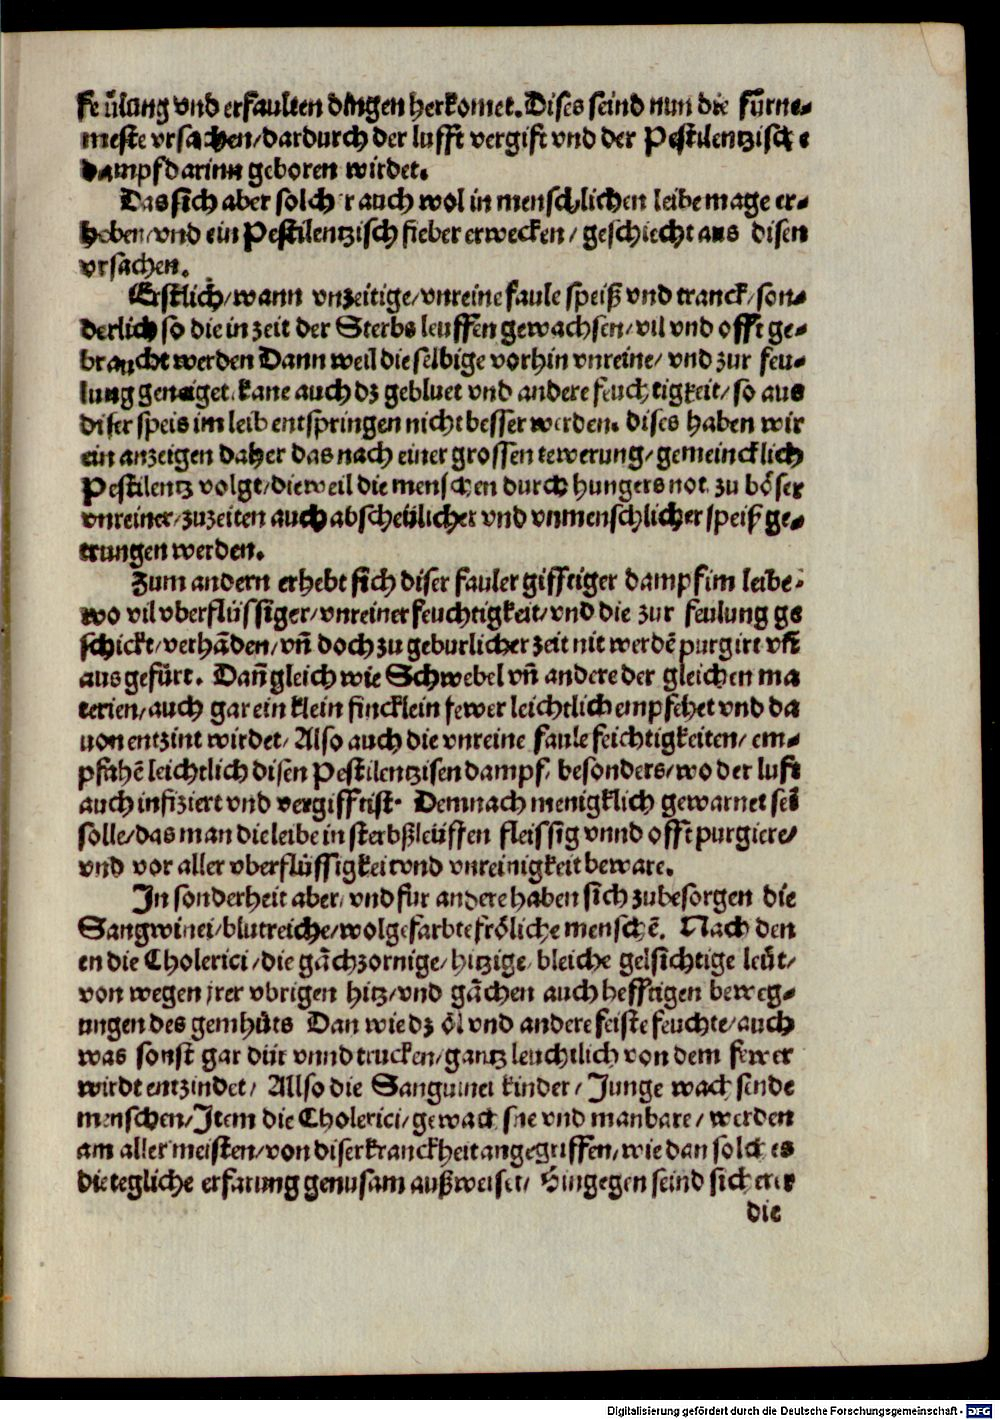 feülung vnd erfaulten dingen herkomet. Dises seind nun die fürne-
meste vrsachen/dardurch der lufft vergift vnd der Pestilentzische
dampf darinn geboren wirdet.
Das sich aber solcher auch wol in menschlichen leibe mage er-
heben/vnd ein Pestilentzisch fieber erwecken/ geschiecht aus disen
vrsachen.
Erstlich/wann vnzeitige/vnreine faule speiß vnd tranck/son-
derlich so die in zeit der Sterbs leuffen gewachsen/vil vnd offt ge-
braucht werden Dann weil die selbige vorhin vnreine/ vnd zur feu-
lung geneiget/kane auch dz gebluet vnd andere feuchtigkeit/so aus
diser speis im leib entspringen nicht besser werden. dises haben wir
ein anzeigen daher das nach einer grossen tewerung/gemeincklich
Pestilentz volgt/dieweil die menschen durch hungers not zu böser
vnreiner/zuzeiten auch abscheülicher vnd vnmenschlicher speiß ge-
trungen werden.
Zum andern erhebt sich diser fauler gifftiger dampf im leibe/
wo vil vberflüssiger/vnreiner feuchtigkeit/vnd die zur feulung ge
schickt/verhãden/vñ doch zu geburlicher zeit nit werdẽ purgirt vñ
aus gefürt. Dañ gleich wie Schwebel vñ andere der gleichen ma
terien/auch gar ein klein fincklein fewer leichtlich empfehet vnd da
uon entzint wirdet/ Also auch die vnreine faule feichtigkeiten/ em-
pfahẽ leichtlich disen Pestilentzisen dampf/ besonders/wo der luft
auch infiziert vnd vergifft ist. Demnach menigklich gewarnet sei
solle/das man die leibe in sterbßleüffen fleissig vnnd offt purgiere/
vnd vor aller vberflüssigkeit vnd vnreinigkeit beware.
In sonderheit aber/ vnd für andere haben sich zubesorgen die
Sangwinei/blutreiche/wolgefarbte fröliche menschẽ. Nach den
en die Cholerici/die gãchzornige/hitzige/bleiche gelsichtige leüt/
von wegen jrer vbrigen hitz/vnd gãchen auch hefftigen beweg-
ungen des gemhüts Dan wie dz öl vnd andere feiste feuchte/auch
was sonst gar dür vnnd trucken/gantz leuchtlich von dem fewer
wirdt entzindet/ Allso die Sanguinei kinder/Junge wachsende
menschen/Item die Cholerici/gewachsne vnd manbare/ werden
am aller meisten/von diser kranckheit angegriffen/wie dan solches
die tegliche erfarung genusam außweiset/ Hingegen seind sicherer
die
Digitalisierung gefördert durch die Deutsche Forschungsgemeinschaft - DFG